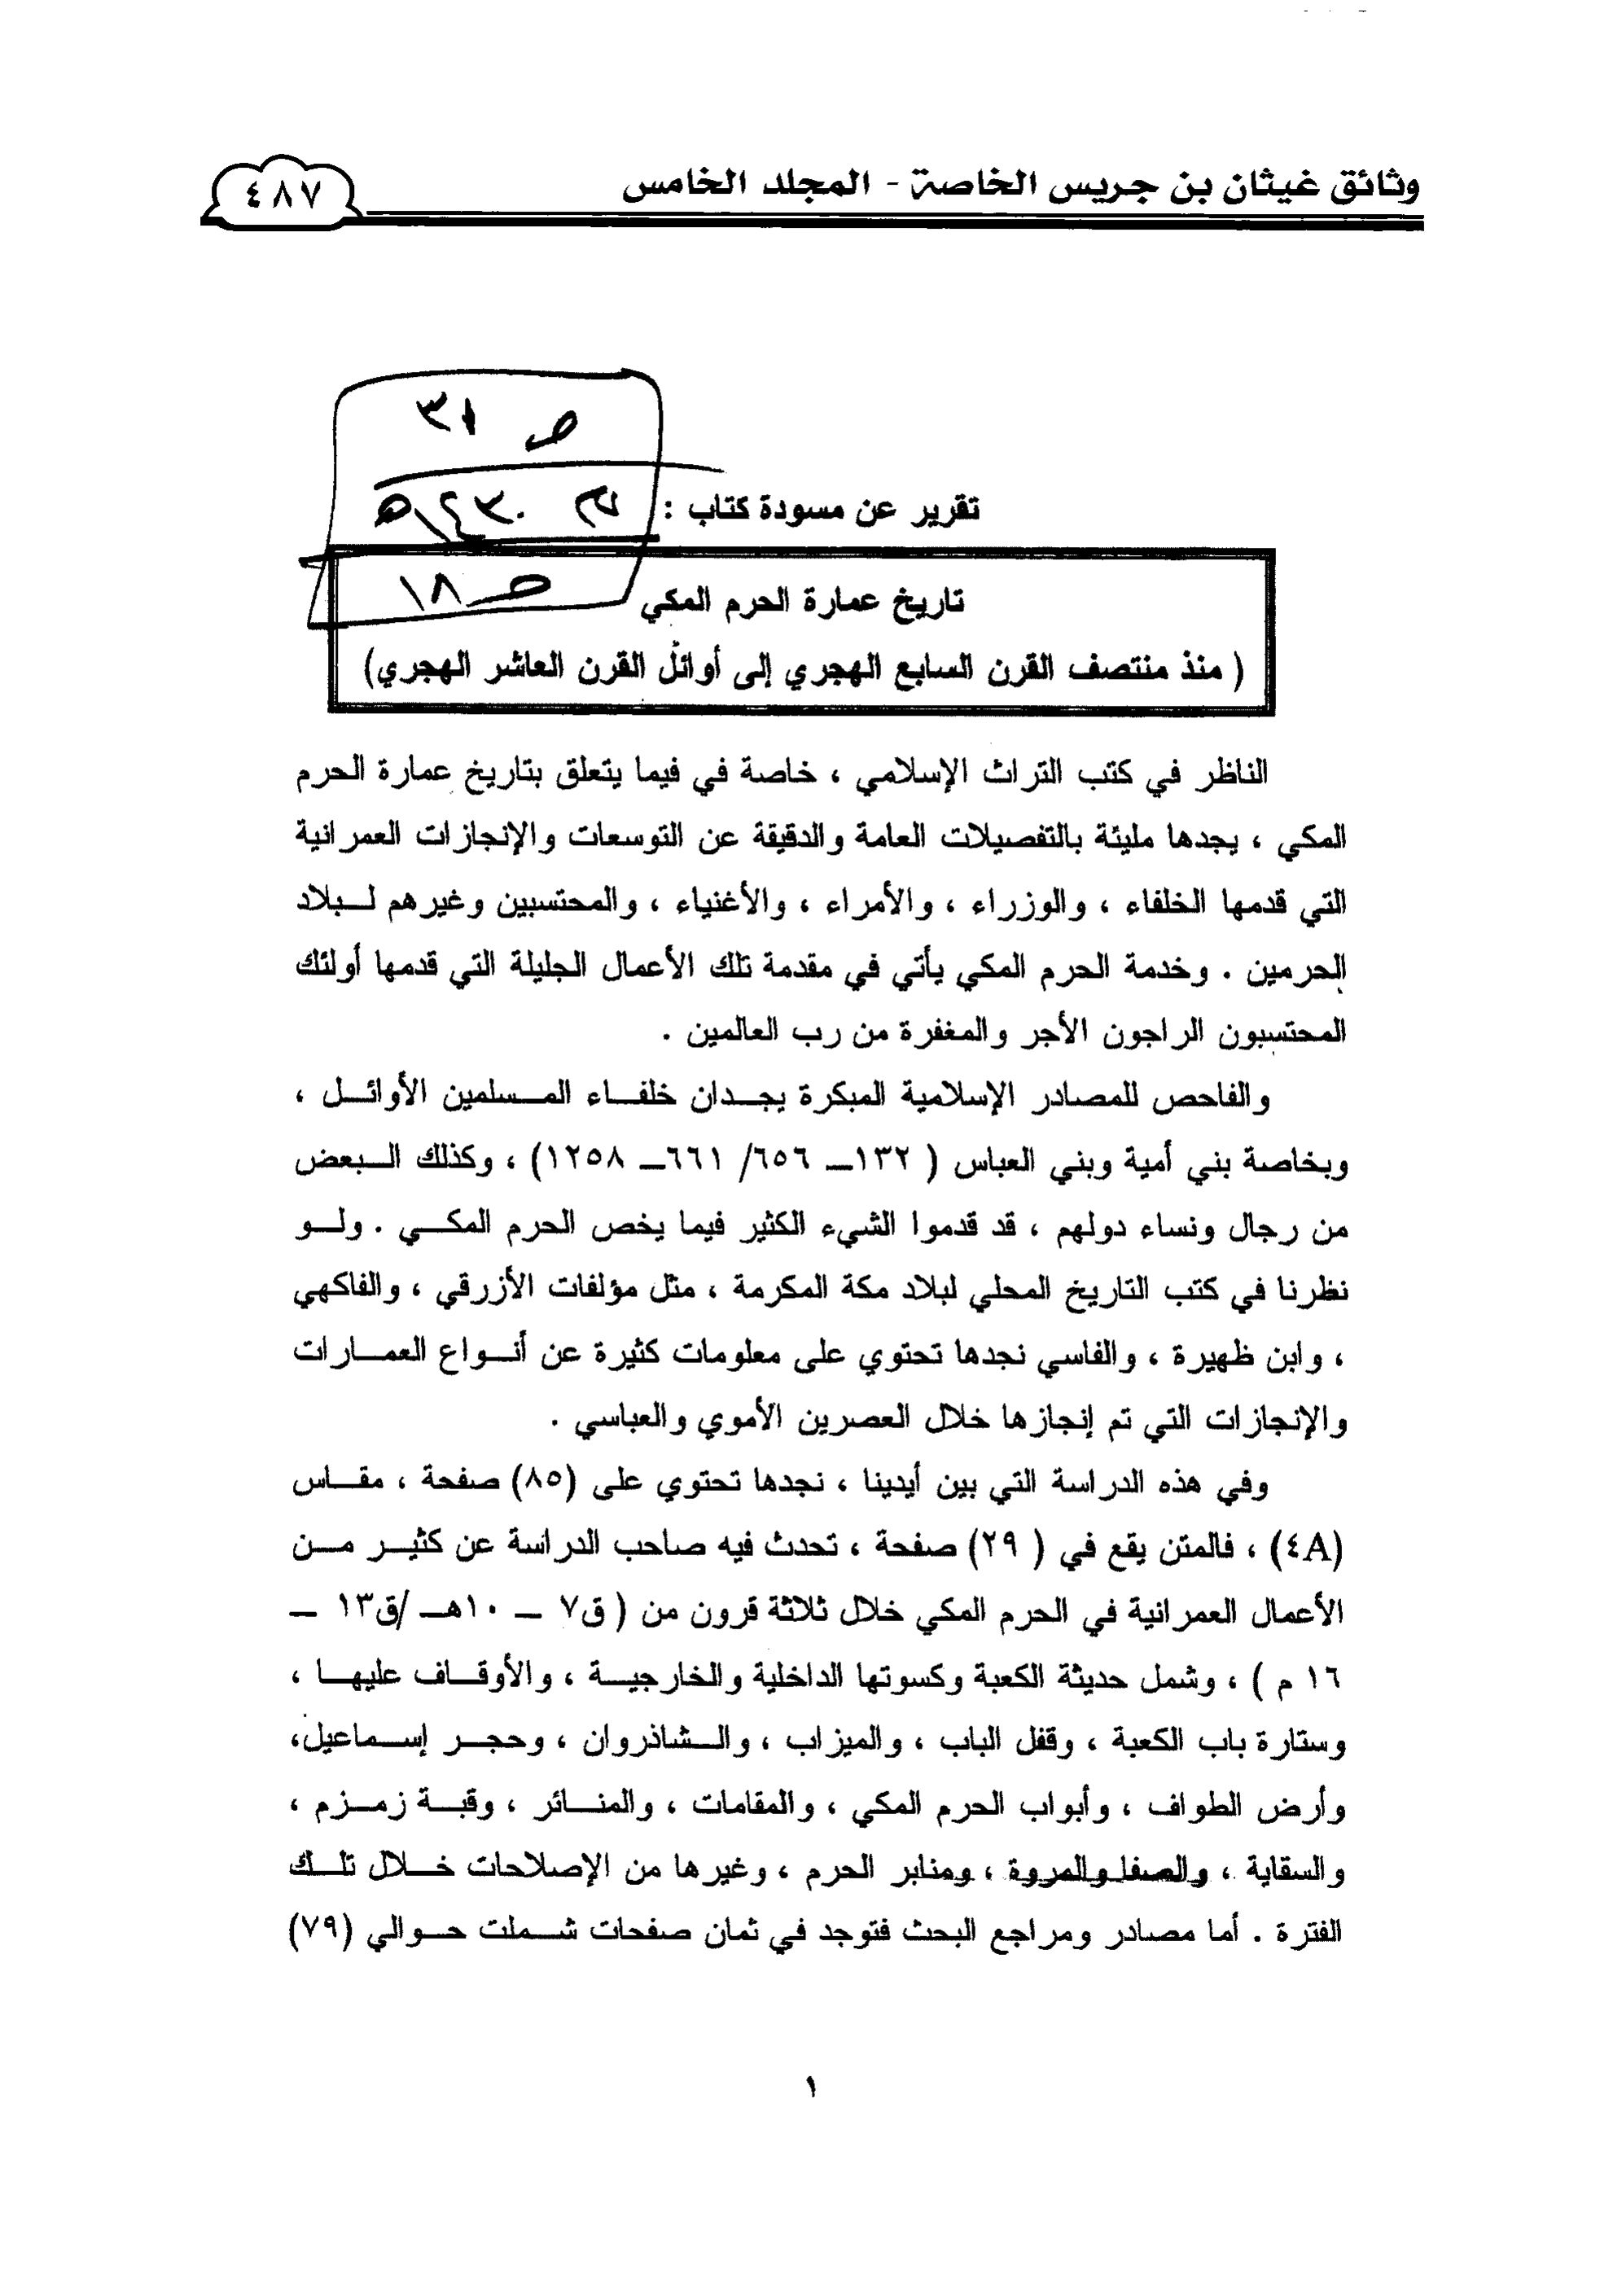 وثائق غيثان بن جريس الخاصة - المجلد الخامس
٤٨٧
ص ٣١
١٤٣٠هـ
ص ١٨
تقرير عن مسودة كتاب :
تاريخ عمارة الحرم المكي
( منذ منتصف القرن السابع الهجري إلى أوائل القرن العاشر الهجري)
الناظر في كتب التراث الإسلامي ، خاصة في فيما يتعلق بتاريخ عمارة الحرم
المكي ، يجدها مليئة بالتفصيلات العامة والدقيقة عن التوسعات والإنجازات العمرانية
التي قدمها الخلفاء ، والوزراء ، والأمراء ، والأغنياء ، والمحتسبين وغيرهم لـبلاد
الحرمين . وخدمة الحرم المكي يأتي في مقدمة تلك الأعمال الجليلة التي قدمها أولئك
المحتسبون الراجون الأجر والمغفرة من رب العالمين .
والفاحص للمصادر الإسلامية المبكرة يجـدان خلفـاء المـسلمين الأوائـل ،
وبخاصة بني أمية وبني العباس ( ١٣٢ــ ٦٥٦/ ٦٦١ــ ١٢٥٨) ، وكذلك الـبعض
من رجال ونساء دولهم ، قد قدموا الشيء الكثير فيما يخص الحرم المكـي . ولـو
نظرنا في كتب التاريخ المحلي لبلاد مكة المكرمة ، مثل مؤلفات الأزرقي ، والفاكهي
، وابن ظهيرة ، والفاسي نجدها تحتوي على معلومات كثيرة عن أنـواع العمـارات
والإنجازات التي تم إنجازها خلال العصرين الأموي والعباسي .
وفي هذه الدراسة التي بين أيدينا ، نجدها تحتوي على (٨٥) صفحة ، مقـاس
(٤A) ، فالمتن يقع في ( ٢٩) صفحة ، تحدث فيه صاحب الدراسة عن كثيـر مـن
الأعمال العمرانية في الحرم المكي خلال ثلاثة قرون من ( ق٧ ــ ١٠هـ /ق١٣ ــ
١٦ م ) ، وشمل حديثة الكعبة وكسوتها الداخلية والخارجيـة ، والأوقـاف عليهـا ،
وستارة باب الكعبة ، وقفل الباب ، والميزاب ، والـشاذروان ، وحجـر إسـماعيل،
وأرض الطواف ، وأبواب الحرم المكي ، والمقامات ، والمنـائر ، وقبـة زمـزم ،
والسقاية ، والصفا والمروة ، ومنابر الحرم ، وغيرها من الإصلاحات خـلال تلـك
الفترة . أما مصادر ومراجع البحث فتوجد في ثمان صفحات شـملت حـوالي (٧٩)
١